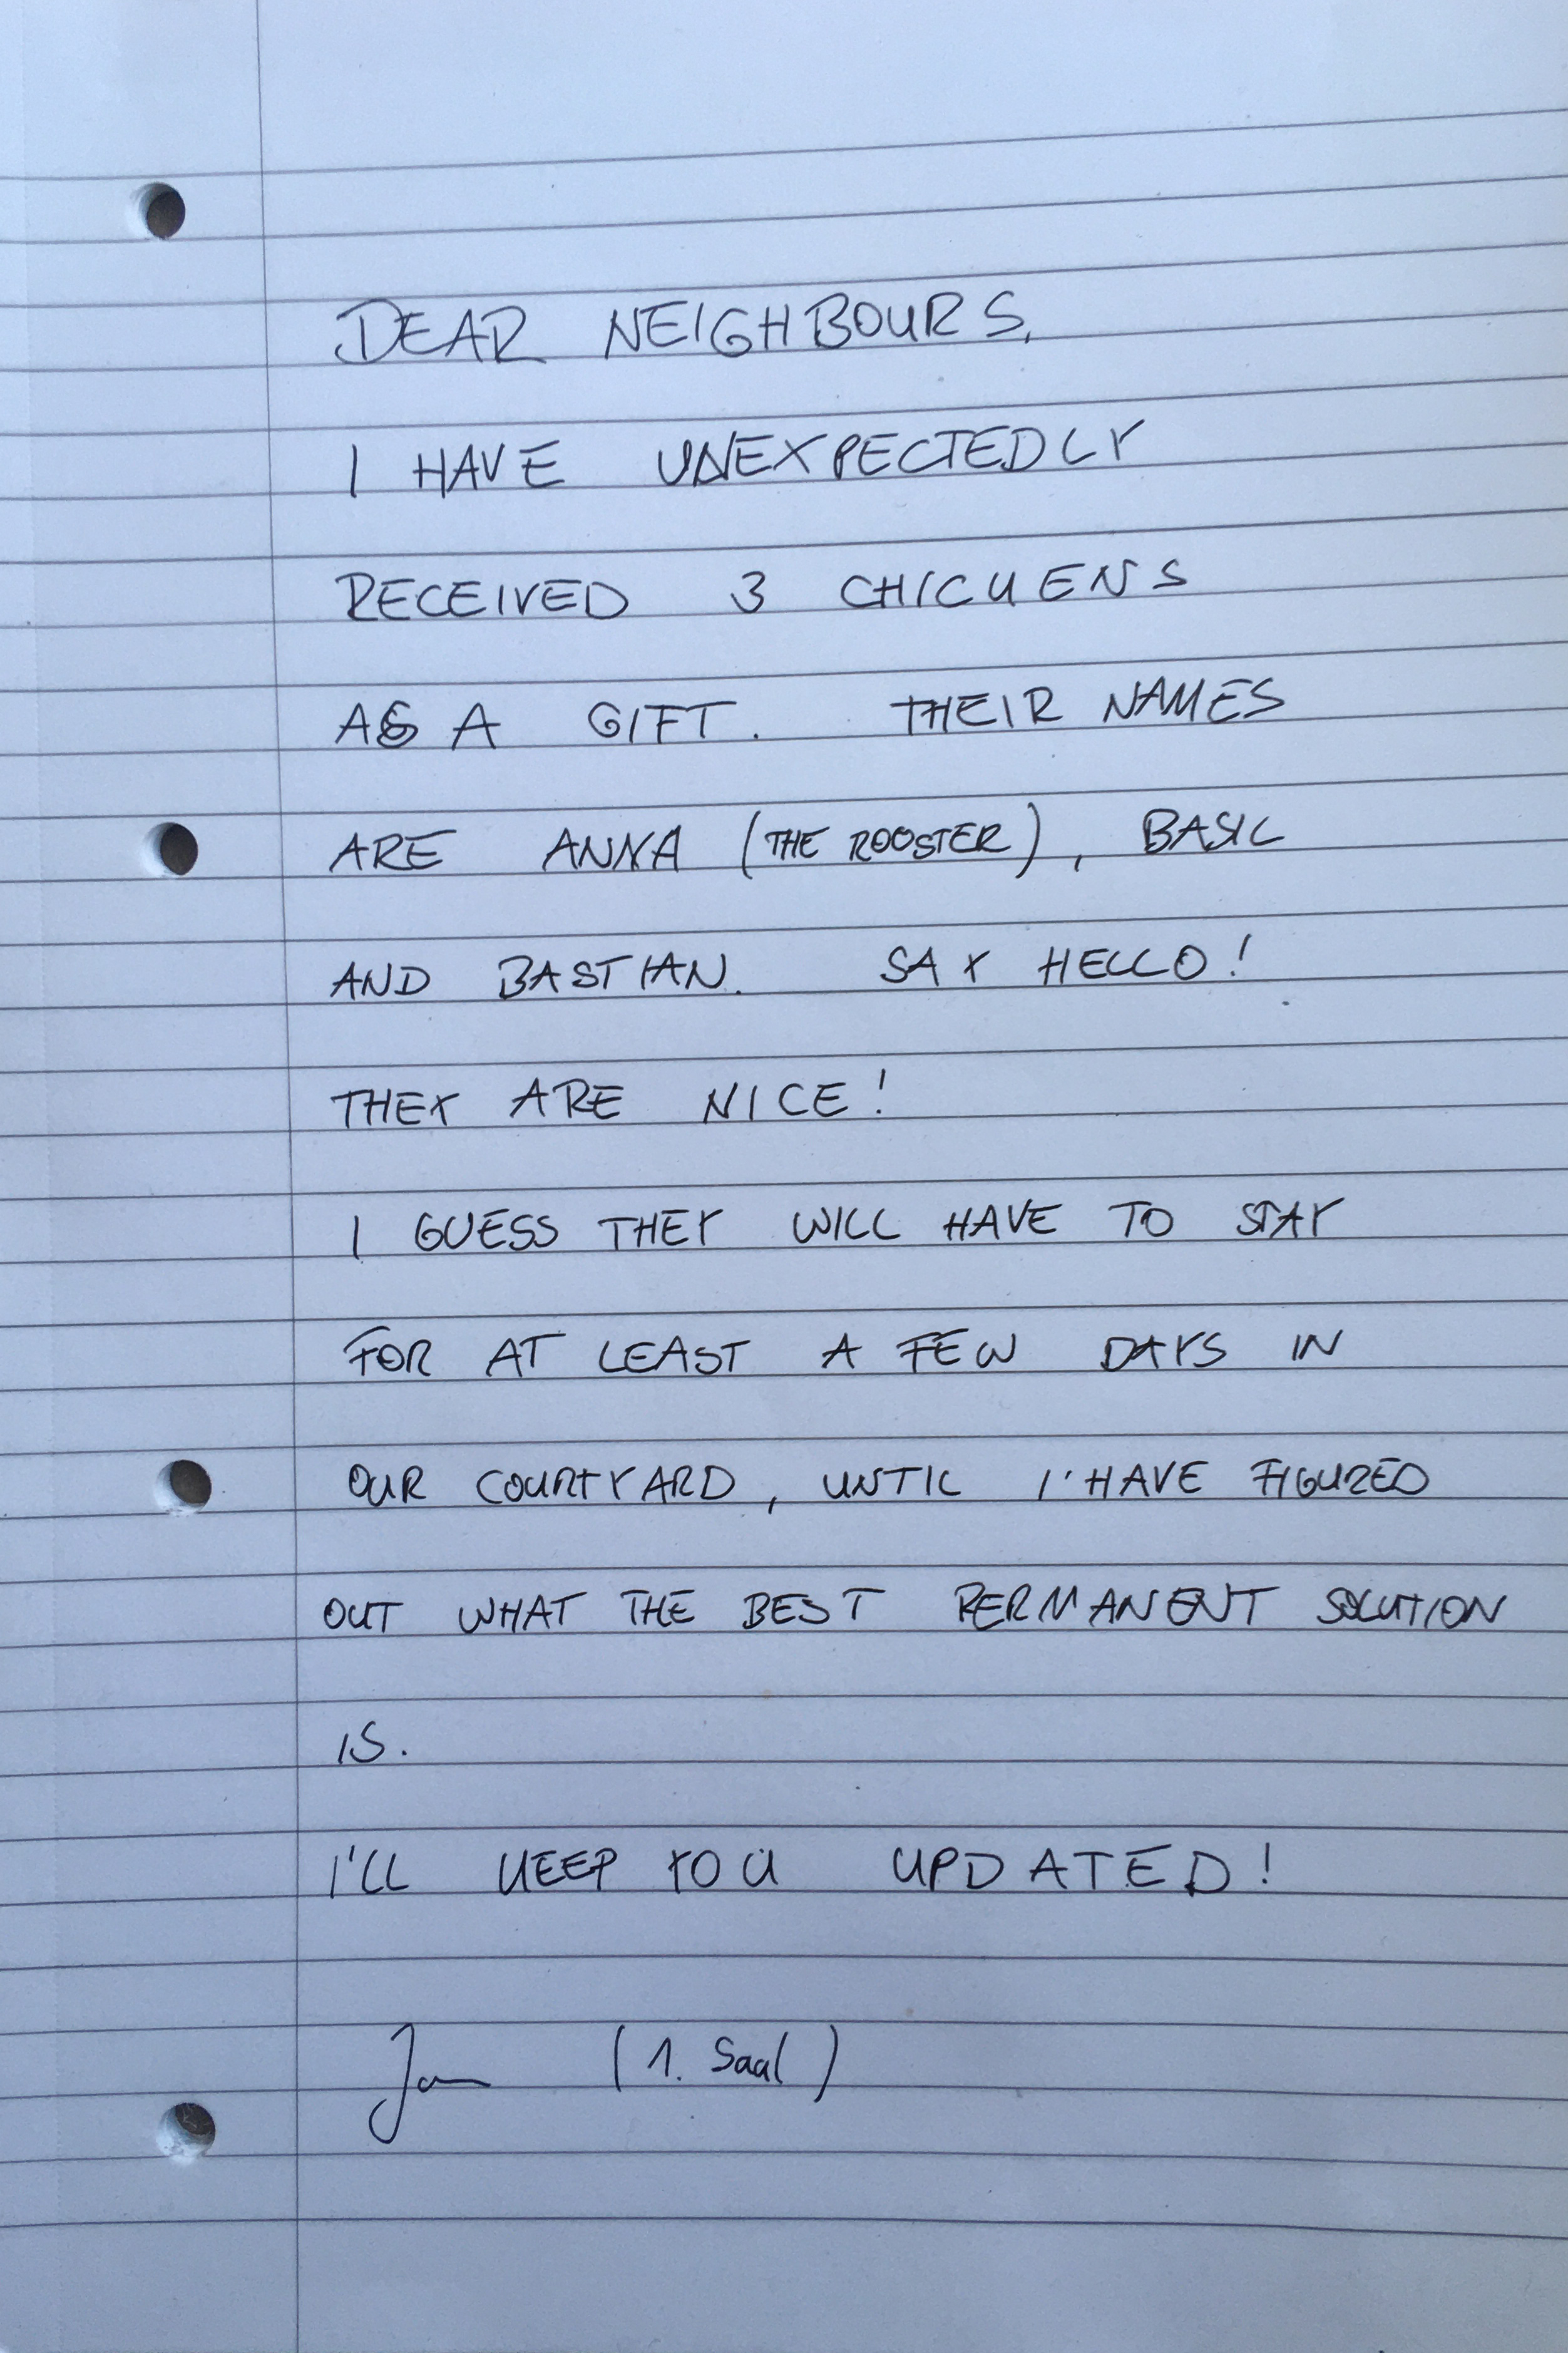 DEAR NEIGHBOURS,
I HAVE UNEXPECTEDLY
RECEIVED 3 CHICKENS
AS A GIFT. THEIR NAMES
ARE ANNA (THE ROOSTER), BASIL
AND BASTIAN. SAY HELLO!
THEY ARE NICE!
I GUESS THEY WILL HAVE TO STAY
FOR AT LEAST A FEW DAYS IN
OUR COURTYARD, UNTIL I HAVE FIGURED
OUT WHAT THE BEST PERMANENT SOLUTION
IS.
I'LL KEEP YOU UPDATED!
Jan (1. Saal)